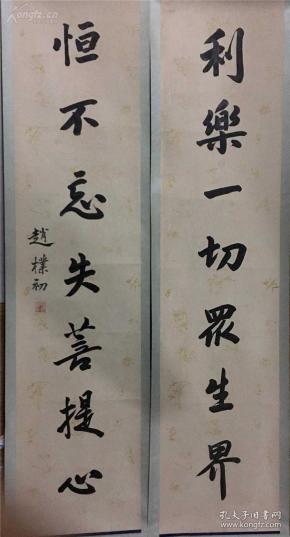 利樂一切眾生界
恒不忘失菩提心
趙樸初
kongfz.com
孔夫子旧书网